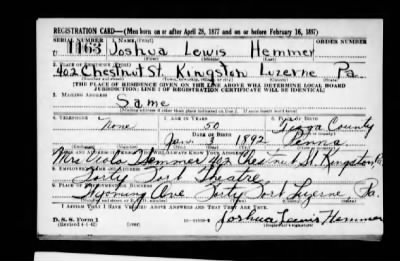 REGISTRATION CARD—(Men born on or after April 28, 1877 and on or before February 16, 1897)
SERIAL NUMBER 1. NAME (Print) ORDER NUMBER
U 1163 Joshua Lewis Hemmer
(First) (Middle) (Last)
2. PLACE OF RESIDENCE (Print)
402 Chestnut St. Kingston Luzerne Pa.
(Number and street) (Town, township, village, or city) (County) (State)
[THE PLACE OF RESIDENCE GIVEN ON THE LINE ABOVE WILL DETERMINE LOCAL BOARD
JURISDICTION; LINE 2 OF REGISTRATION CERTIFICATE WILL BE IDENTICAL]
3. MAILING ADDRESS
Same
[Mailing address if other than place indicated on line 2. If same insert word same]
4. TELEPHONE 5. AGE IN YEARS 6. PLACE OF BIRTH
None 50 Tioga County
DATE OF BIRTH
Jan. 1892 Penna
7. NAME AND ADDRESS OF PERSON WHO WILL ALWAYS KNOW YOUR ADDRESS
Mrs Viola Hemmer 402 Chestnut St. Kingston Pa
8. EMPLOYER'S NAME AND ADDRESS
Forty Fort Theatre
9. PLACE OF EMPLOYMENT OR BUSINESS
Wyoming Ave Forty Fort Luzerne Pa.
I AFFIRM THAT I HAVE VERIFIED ABOVE ANSWERS AND THAT THEY ARE TRUE.
D. S. S. Form 1
(Revised 4-1-42) Joshua Lewis Hemmer
(Registrant's signature)